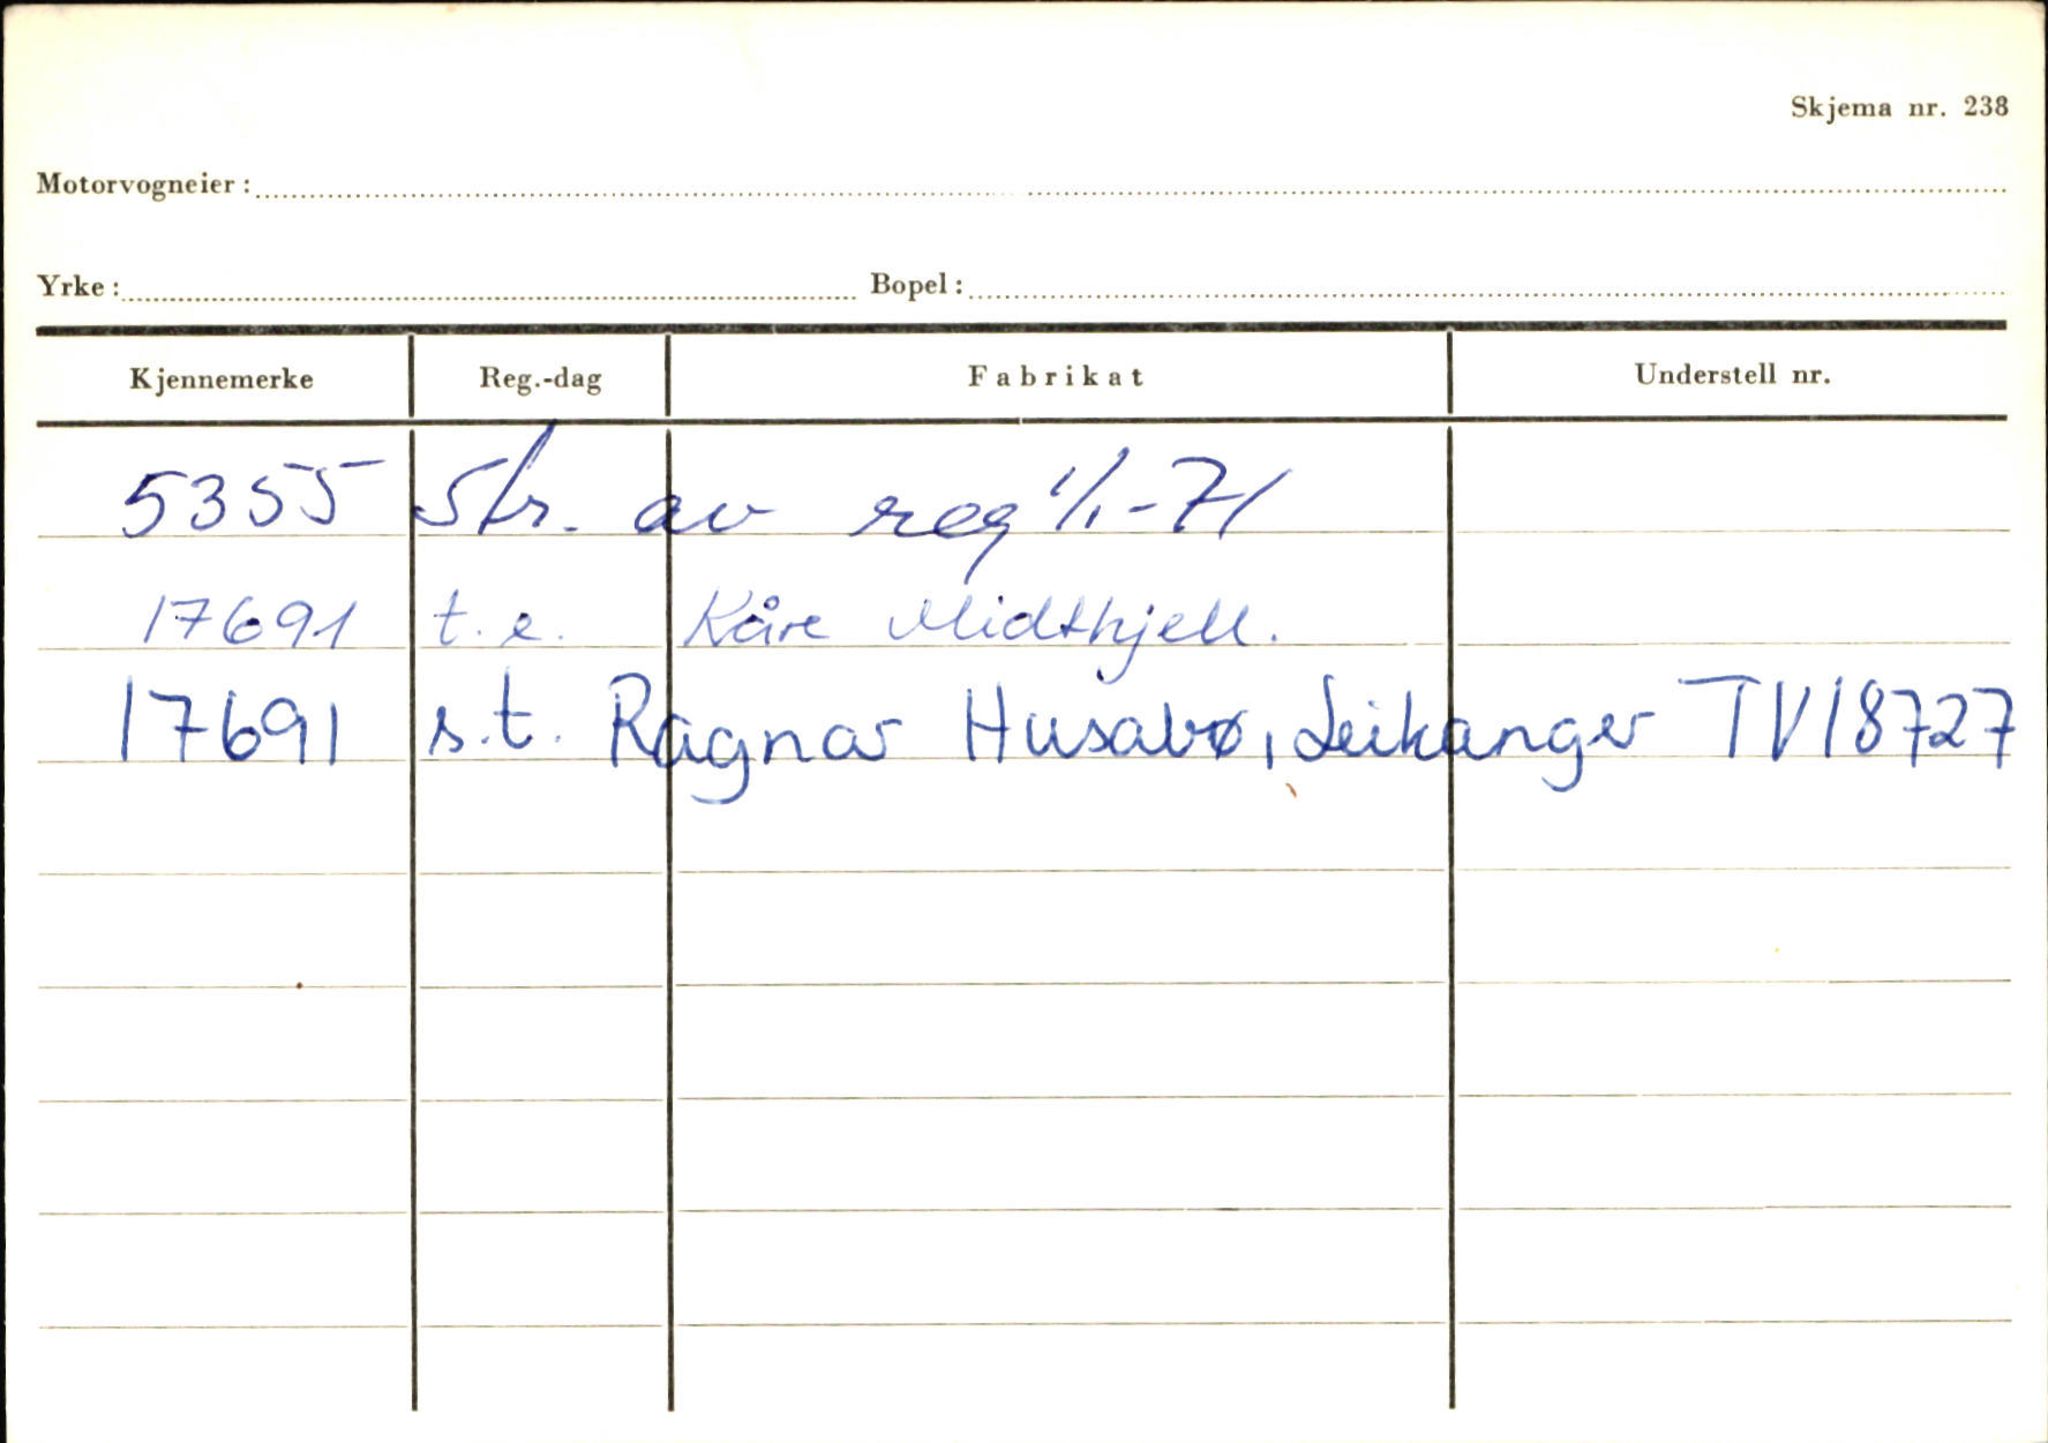 Skjema nr. 238
Motorvogneier:
Yrke: Bopel:
Kjennemerke Reg.-dag Fabrikat Understell nr.
5355 Str. av reg 1/1-71
17691 t.e. Kåre Midthjell.
17691 s.t. Ragnar Husabø, Leikanger TV18727